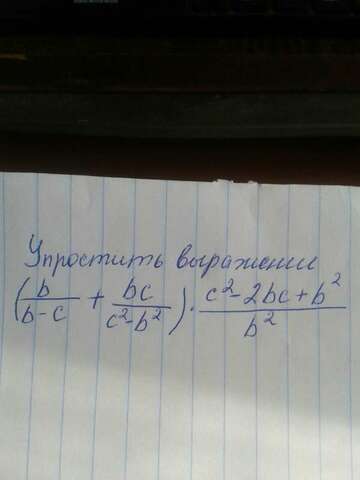 Упростить выражении
(b/(b-c) + bc/(c²-b²)) · (c²-2bc+b²)/b²